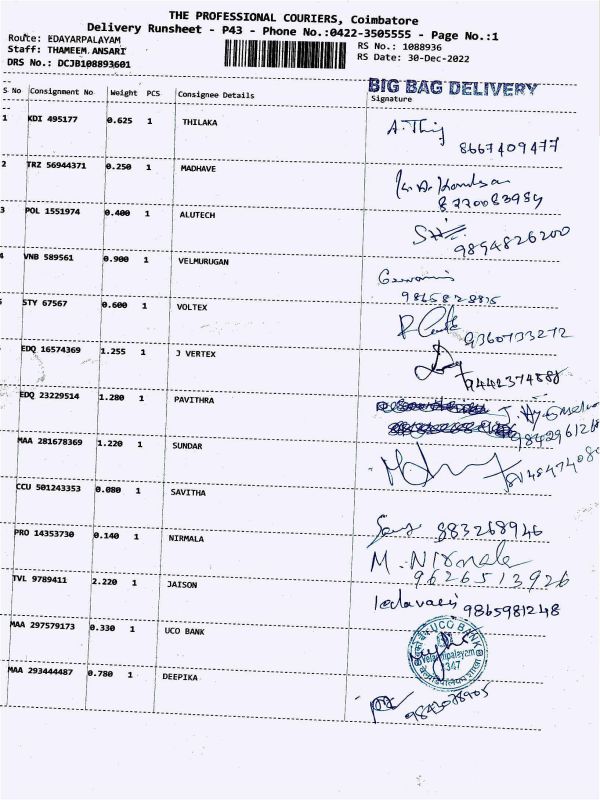 THE PROFESSIONAL COURIERS, Coimbatore
Delivery Runsheet - P43 - Phone No.:0422-3505555 - Page No.:1
Route: EDAYARPALAYAM
RS No.: 1088936
Staff: THAMEEM ANSARI
RS Date: 30-Dec-2022
DRS No.: DCJB108893601
BIG BAG DELIVERY
S No Consignment No Weight PCS Consignee Details Signature
1 KDI 495177 0.625 1 THILAKA
8667409477
2 TRZ 56944371 0.250 1 MADHAVE
8220083984
3 POL 1551974 0.400 1 ALUTECH
9894826200
4 VNB 589561 0.900 1 VELMURUGAN
5 STY 67567 0.600 1 VOLTEX
9360733272
EDQ 16574369 1.255 1 J VERTEX
EDQ 23229514 1.280 1 PAVITHRA
MAA 281678369 1.220 1 SUNDAR
CCU 501243353 0.080 1 SAVITHA
883268946
PRO 14353730 0.140 1 NIRMALA
M. Nirmala
9626513926
TVL 9789411 2.220 1 JAISON
9865981248
MAA 297579173 0.330 1 UCO BANK
UCO BANK
1347
MAA 293444487 0.780 1 DEEPIKA